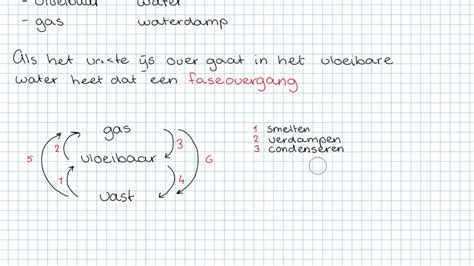 - vloeibaar water
- gas waterdamp
Als het vaste ijs over gaat in het vloeibare
water heet dat een faseovergang
gas
vloeibaar
vast
5 2 1 3 4 6
1 smelten
2 verdampen
3 condenseren